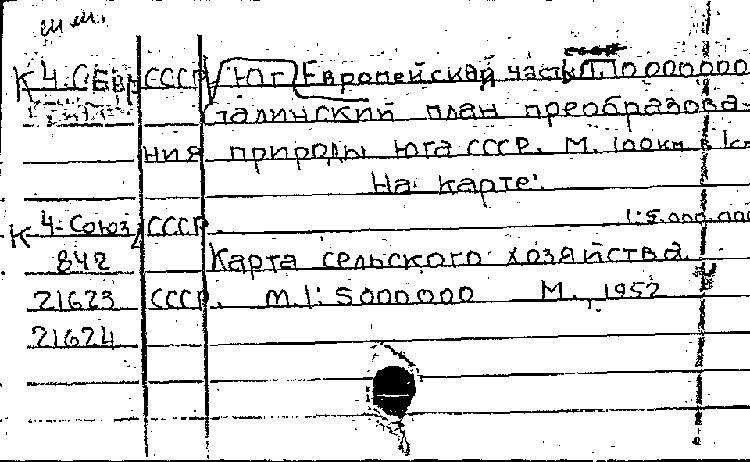 К 4. СЕвр СССР Юг Европейской части 1:10 000000
Сталинский план преобразова-
ния природы юга СССР. М. 100км в 1с
На карте:
К 4-Союз СССР. 1:5.000.000
842 Карта сельского хозяйства
21623 СССР. м.1:5000000 М., 1952
21624